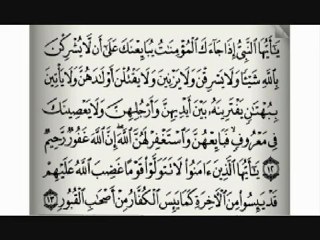 يَٰٓأَيُّهَا ٱلنَّبِىُّ إِذَا جَآءَكَ ٱلْمُؤْمِنَٰتُ يُبَايِعْنَكَ عَلَىٰٓ أَن لَّا يُشْرِكْنَ
بِٱللَّهِ شَيْـًٔا وَلَا يَسْرِقْنَ وَلَا يَزْنِينَ وَلَا يَقْتُلْنَ أَوْلَٰدَهُنَّ وَلَا يَأْتِينَ
بِبُهْتَٰنٍ يَفْتَرِينَهُۥ بَيْنَ أَيْدِيهِنَّ وَأَرْجُلِهِنَّ وَلَا يَعْصِينَكَ
فِى مَعْرُوفٍ ۙ فَبَايِعْهُنَّ وَٱسْتَغْفِرْ لَهُنَّ ٱللَّهَ ۖ إِنَّ ٱللَّهَ غَفُورٌ رَّحِيمٌ
١٢ يَٰٓأَيُّهَا ٱلَّذِينَ ءَامَنُوا۟ لَا تَتَوَلَّوْا۟ قَوْمًا غَضِبَ ٱللَّهُ عَلَيْهِمْ
قَدْ يَئِسُوا۟ مِنَ ٱلْءَاخِرَةِ كَمَا يَئِسَ ٱلْكُفَّارُ مِنْ أَصْحَٰبِ ٱلْقُبُورِ ١٣